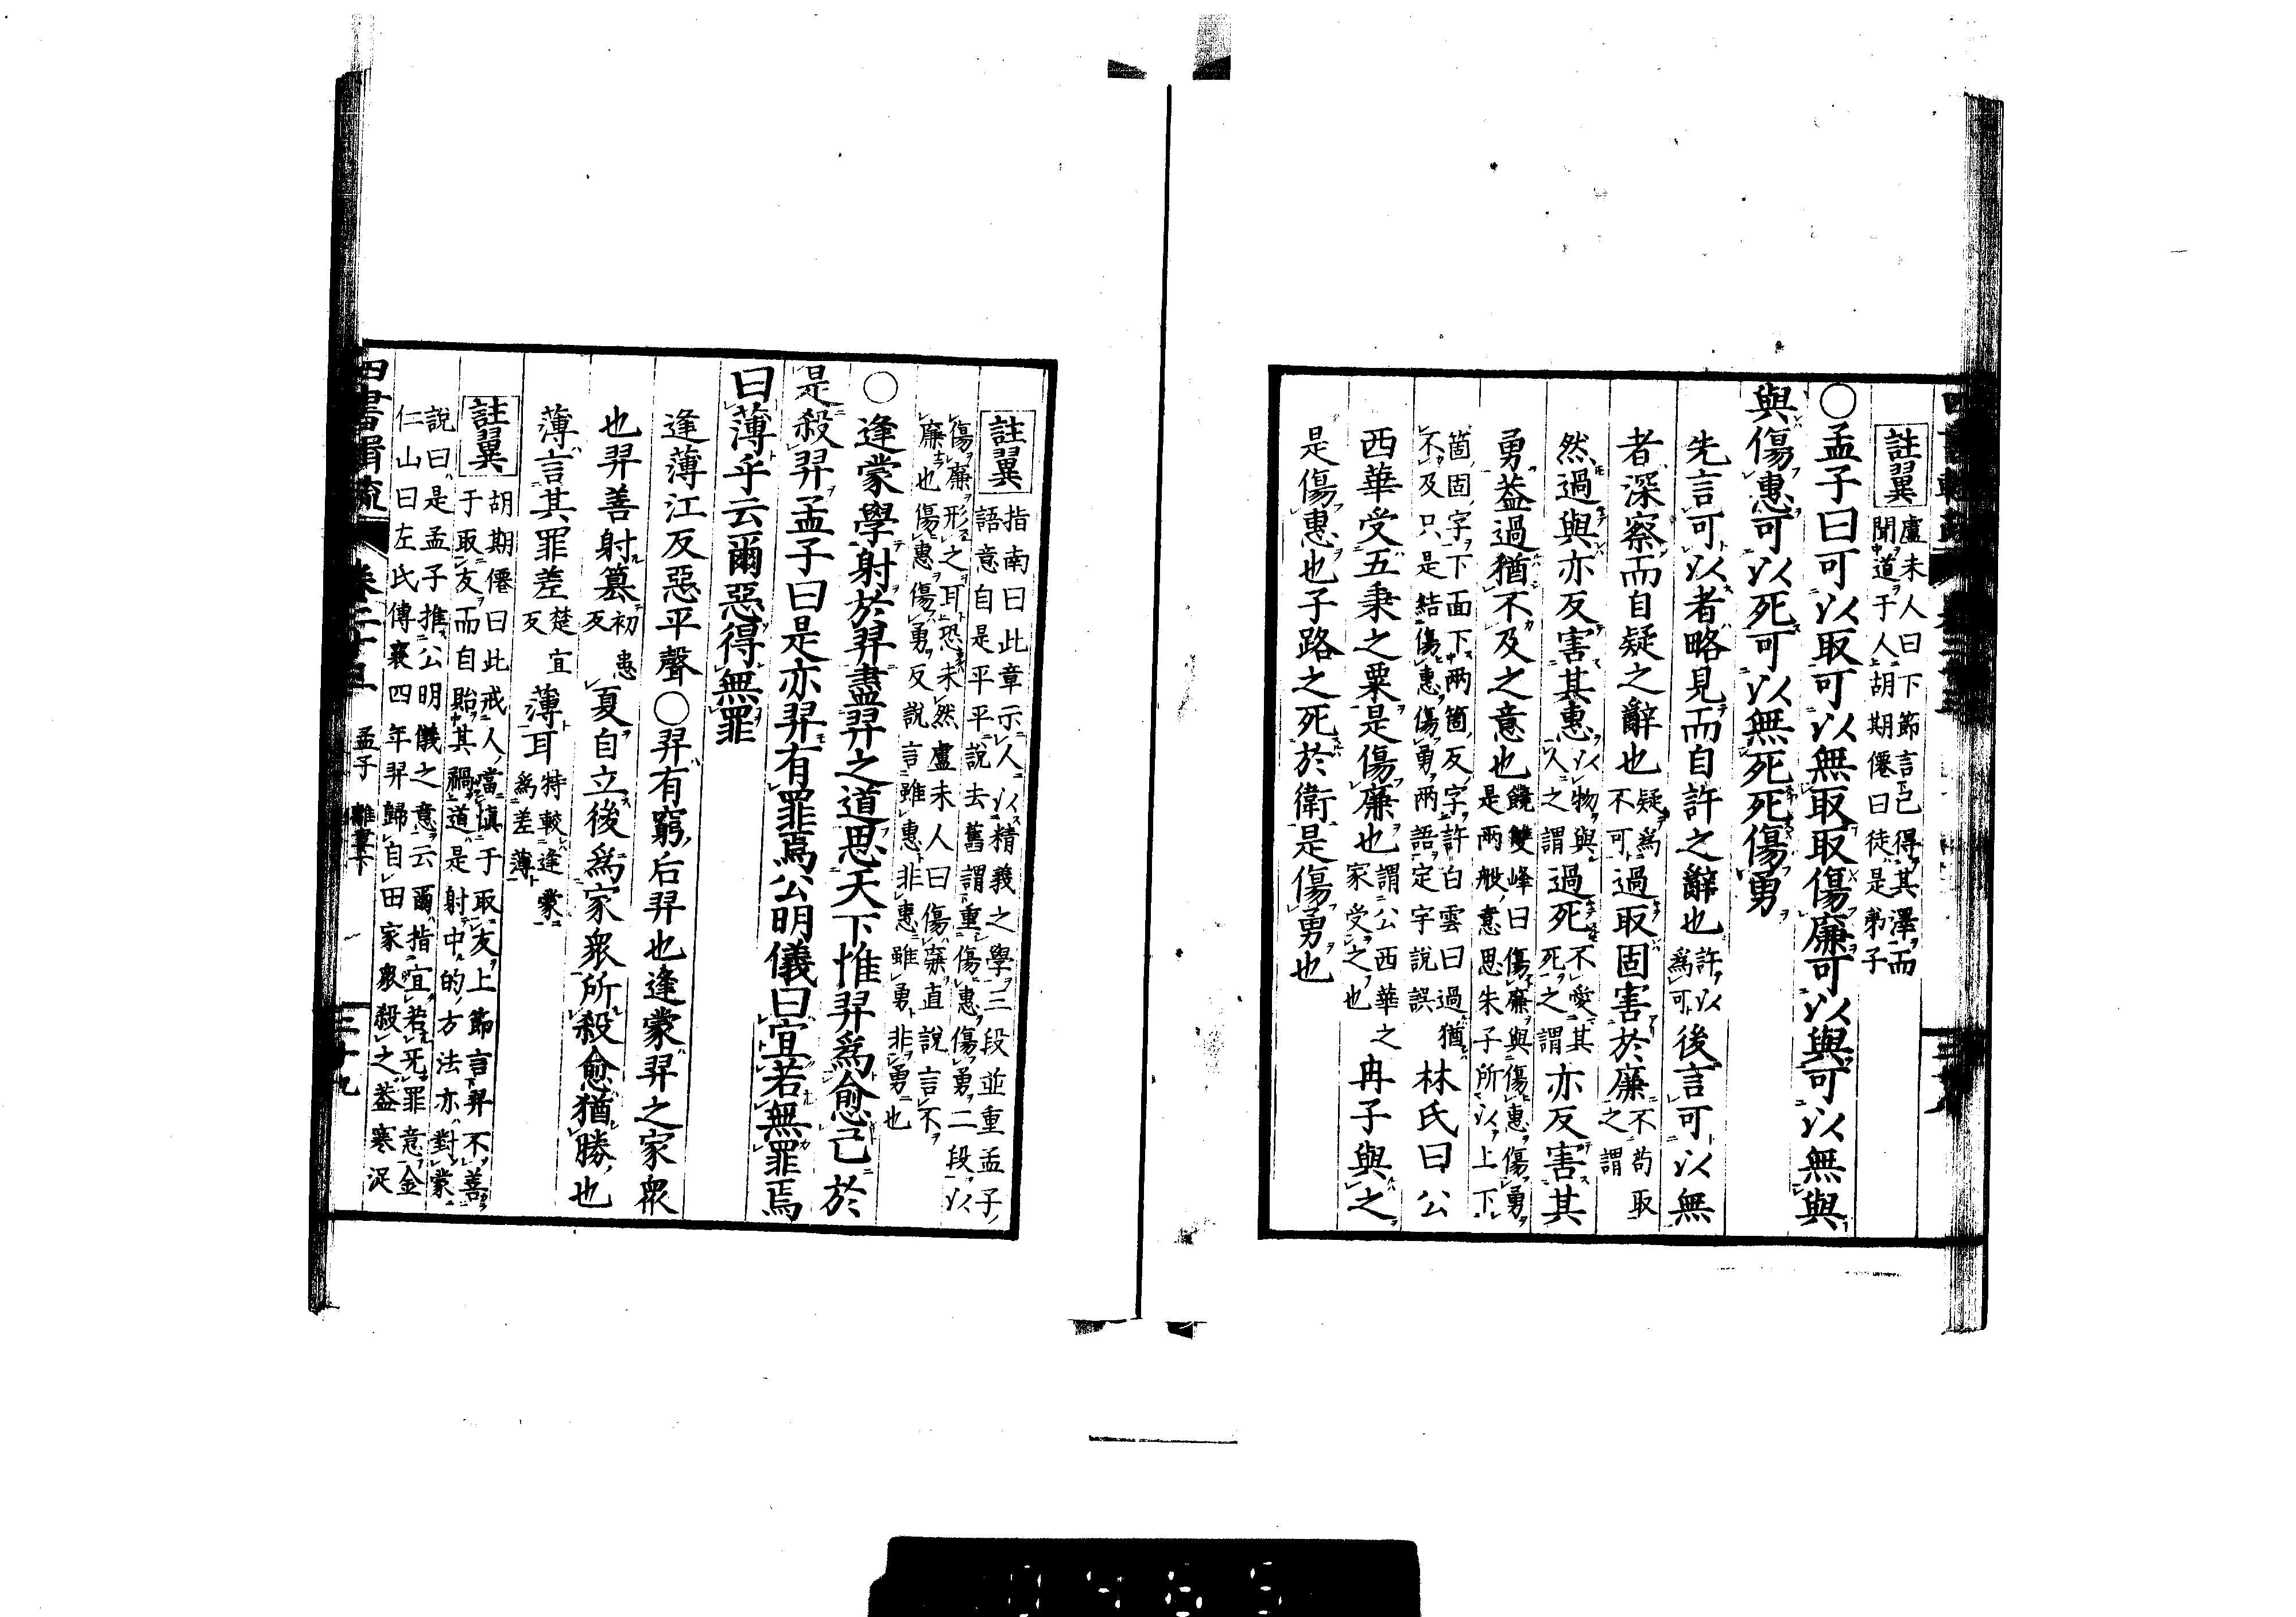 註翼
盧未人曰下節言己得其澤而
聞道于人胡期僊曰徒是弟子
〇孟子曰可以取可以無取取傷廉可以與可以無與
與傷惠可以死可以無死死傷勇
先言可以者略見而自許之辭也
許以
爲可
後言可以無
者深察而自疑之辭也
疑爲
不可
過取固害於廉
不苟取
之謂
然過與亦反害其惠
以物與
人之謂
過死
不愛其
死之謂
亦反害其
勇蓋過猶不及之意也
饒雙峰曰傷廉與傷惠傷勇
是兩般意思朱子所以上下
箇固字下面下兩箇反字許白雲曰過猶
不及只是結傷惠傷勇兩語定宇說誤
林氏曰公
西華受五秉之粟是傷廉也
謂公西華之
家受之也
冉子與之
是傷惠也子路之死於衛是傷勇也
註翼
指南曰此章示人以精義之學三段並重孟子
語意自是平平說去舊謂重傷惠傷勇二段以
傷廉形之耳恐未然盧未人曰傷廉直說言不
廉也傷惠傷勇反說言雖惠非惠雖勇非勇也
〇逢蒙學射於羿盡羿之道思天下惟羿爲愈己於
是殺羿孟子曰是亦羿有罪焉公明儀曰宜若無罪焉
曰薄乎云爾惡得無罪
逢薄江反惡平聲〇羿有窮后羿也逢蒙羿之家衆
也羿善射篡
初患
反
夏自立後爲家衆所殺愈猶勝也
薄言其罪差
楚宜
反
薄耳
特較逢蒙
爲差薄
註翼
胡期僊曰此戒人當慎于取友上節言羿不善
于取友而自貽其禍道是射中的方法亦對蒙
說曰是孟子推公明儀之意云爾指宜若死罪意金
仁山曰左氏傳襄四年羿歸自田家衆殺之蓋寒浞
四書輯疏
卷二十五
孟子
離婁下
三十九